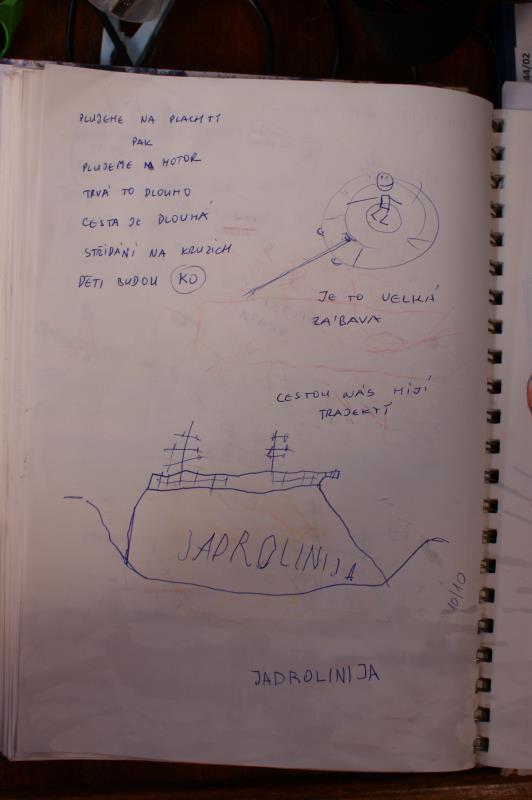 PLUJEME NA PLACHTY
PAK
PLUJEME NA MOTOR
TRVÁ TO DLOUHO
CESTA JE DLOUHÁ
STŘÍDÁNÍ NA KRUZÍCH
DĚTI BUDOU KO
JE TO VELKÁ
ZÁBAVA
CESTOU NÁS MÍJÍ
TRAJEKTY
JADROLINIJA
10/10
JADROLINIJA
44/02